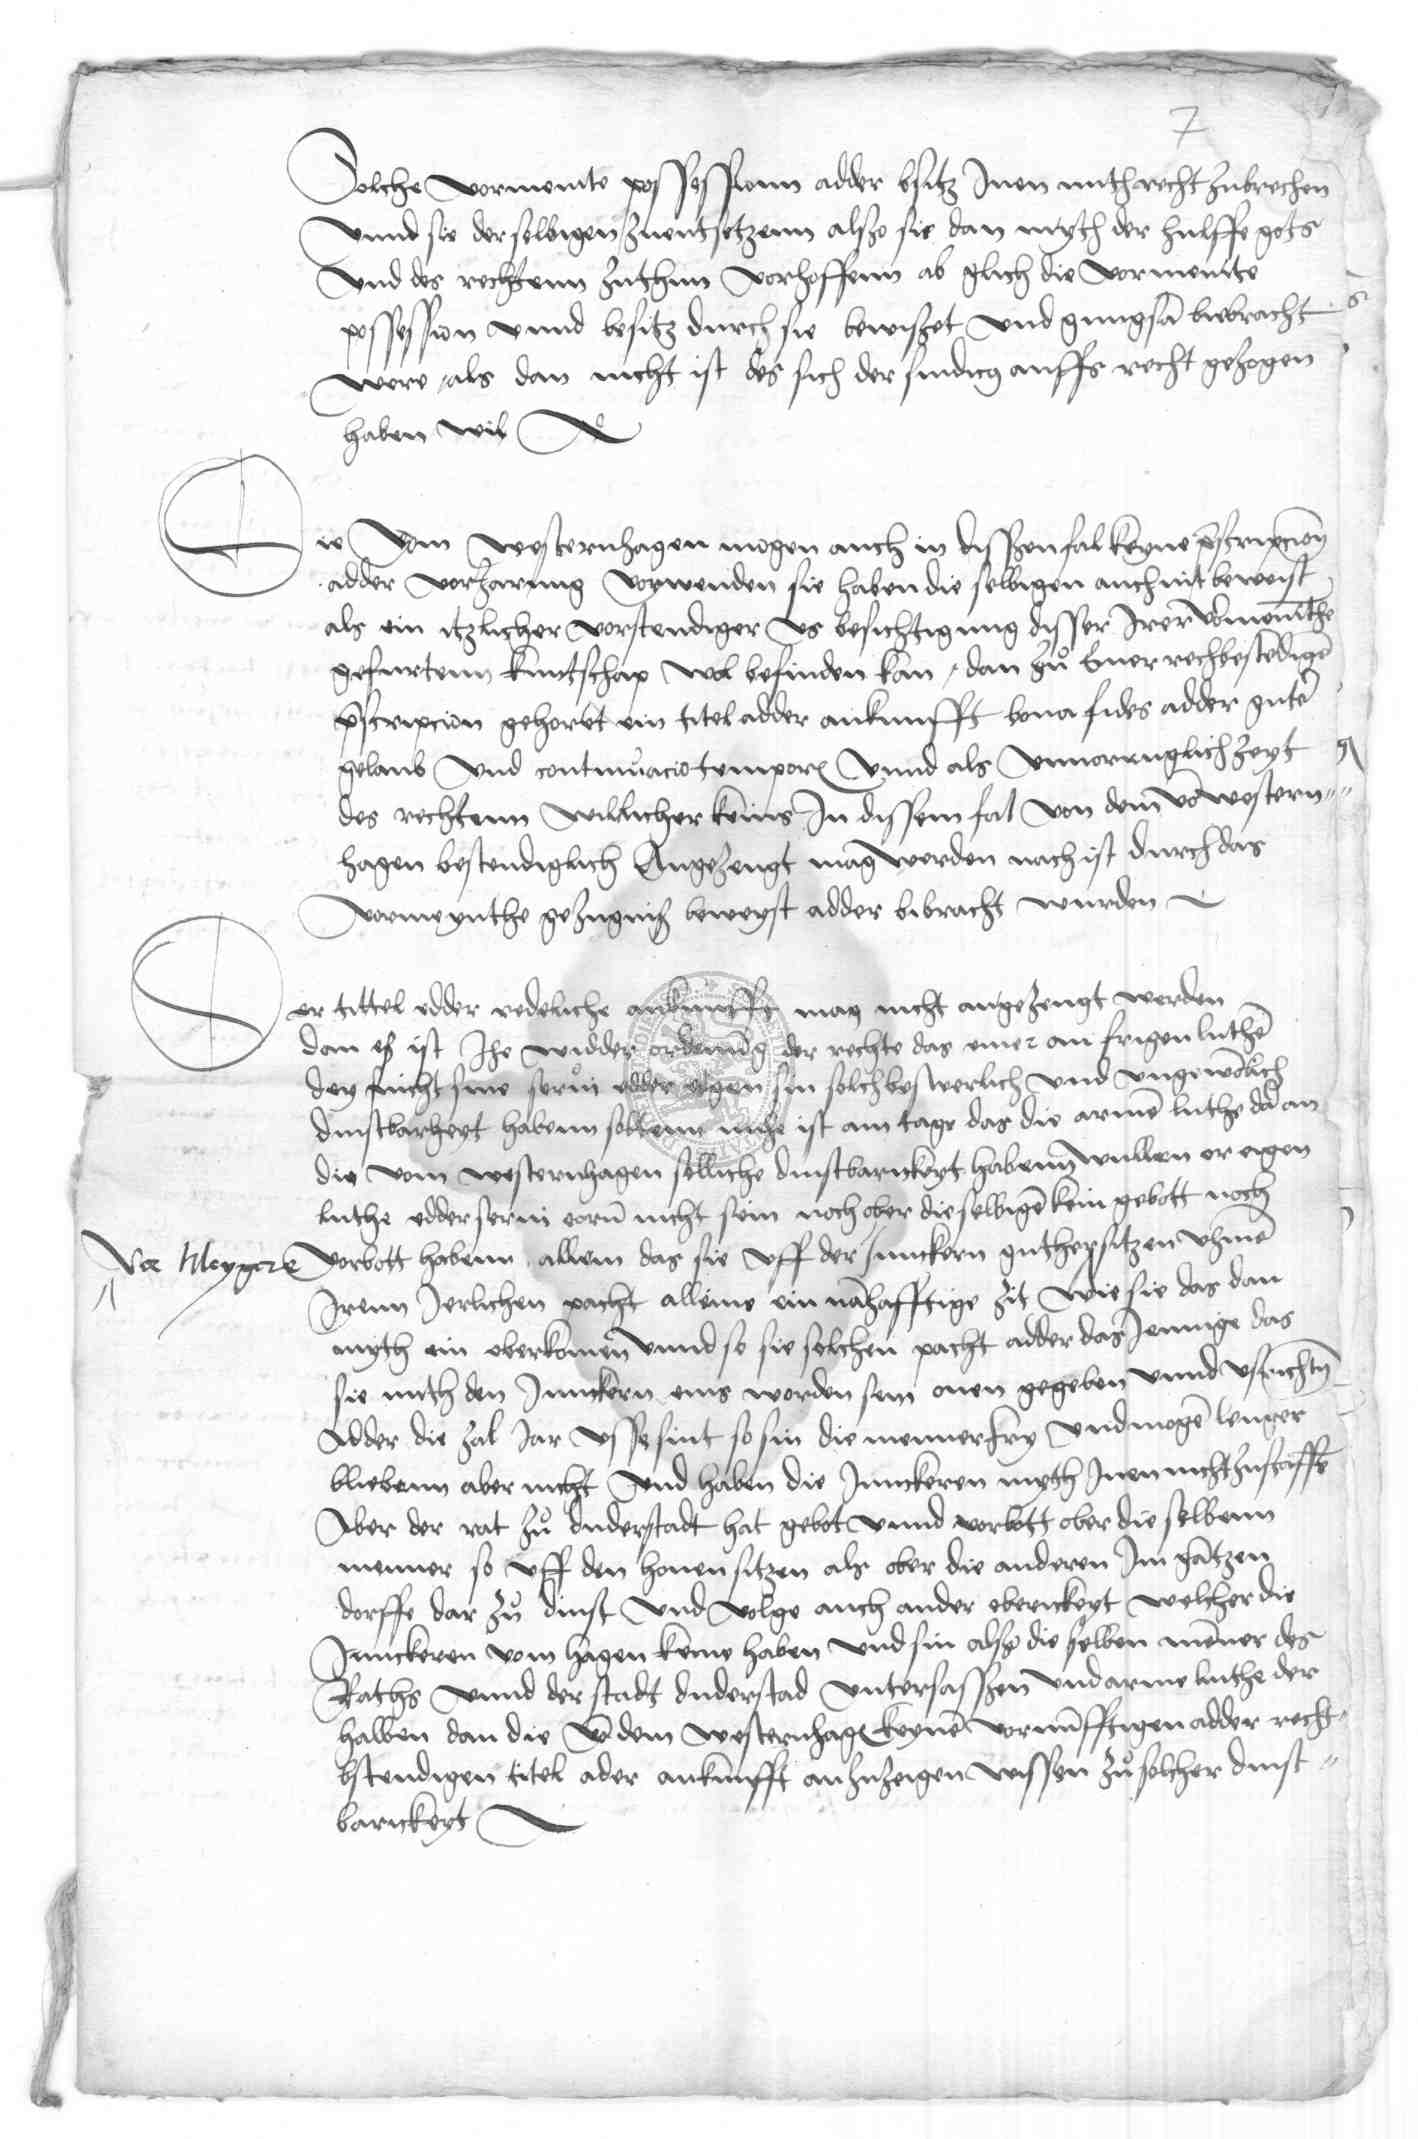 7
Solche vormeinte possessionn adder bsitz Inen mith recht zubrechen
vnnd sie derselbigen zuentsetzenn alszo sie dan myth der hulffe gots
vnd des rechtenn zuthun vorhoffenn ab glich die vormeinte
possession vnnd besitz durch sie bewiszet vnd gnugsā biebracht
were / als dan nicht ist des sich der sindicq auffs recht gezogen
haben wil
Die vom westernhagen mogen auch in disszen fal keyne p̄scripcion
adder vorjarung vorwenden sie haben die selbigen auch nit beweist
als ein itzlicher vorstendiger vs besichtigung disser Irer vormeinthe
gefurtenn kuntschap wol befinden kan / dan zů einer rechbestēdigē
p̄scripcion gehoret ein titel adder ankunfft bona fides adder gutē
gelaub vnd continuacio temporis vnnd als vnvorruglich zeyt
des rechtenn willicher keins In dissem fal von dem vō western
hagen bestendiglich Angezeugt mag werden nach ist durch das
vormeynthe gezugnisz beweyst adder bibracht wurden
Der tittel edder redeliche ankunfft mag nicht angezeugt werden
dan esz ist Ihe widder ordenūg der rechte das einer an frigen luthē
dey nicht sine serui edder eigen sin solch beswerlich vnd vngewōlich
dinstbarkeyt habenn sollenn nuhe ist am tage das die armē luthe dā an
die vom westernhagen solliche dinstbarickeyt habenn wullen er eigen
luthe edder serui eorū nicht sein noch ober die selbigē kein gebott noch
Vor Meygere vorbott habenn allein das sie vff der Junckern guther sitzen vhmē
Irenn Jerlichen pacht alleine ein nāhafftige zit wie sie das dan
myth ein oberkomen vnnd so sie solchen pacht adder das Jennige das
sie mith den Junckern eins worden sein onen gegeben vnnd vsrichtn
Adder die zal Jar vsse sint so sin die menner fry vnd mogē lenger
bliebenn aber nicht vnd haben die Junckeren myth Inen nicht zuschaffē
Aber der rat zů duderstadt hat gebot vnnd vorbott ober die selbenn
menner so vff den houen sitzen als ober die anderen Im gātzen
dorffe dar zů dinst vnd volge auch ander oberickeyt welcher die
Junckeren vom hagen keine haben vnd sin alszo die selben mēner des
Raths vnnd der stadt duderstad vntersasszen vnd arme luthe der
halben dan die vō dem westernhagē keynē vornūfftigen adder recht
bstendigen titel ader ankūnfft anzuzeigen wissen zů solcher dinst
barickeyt